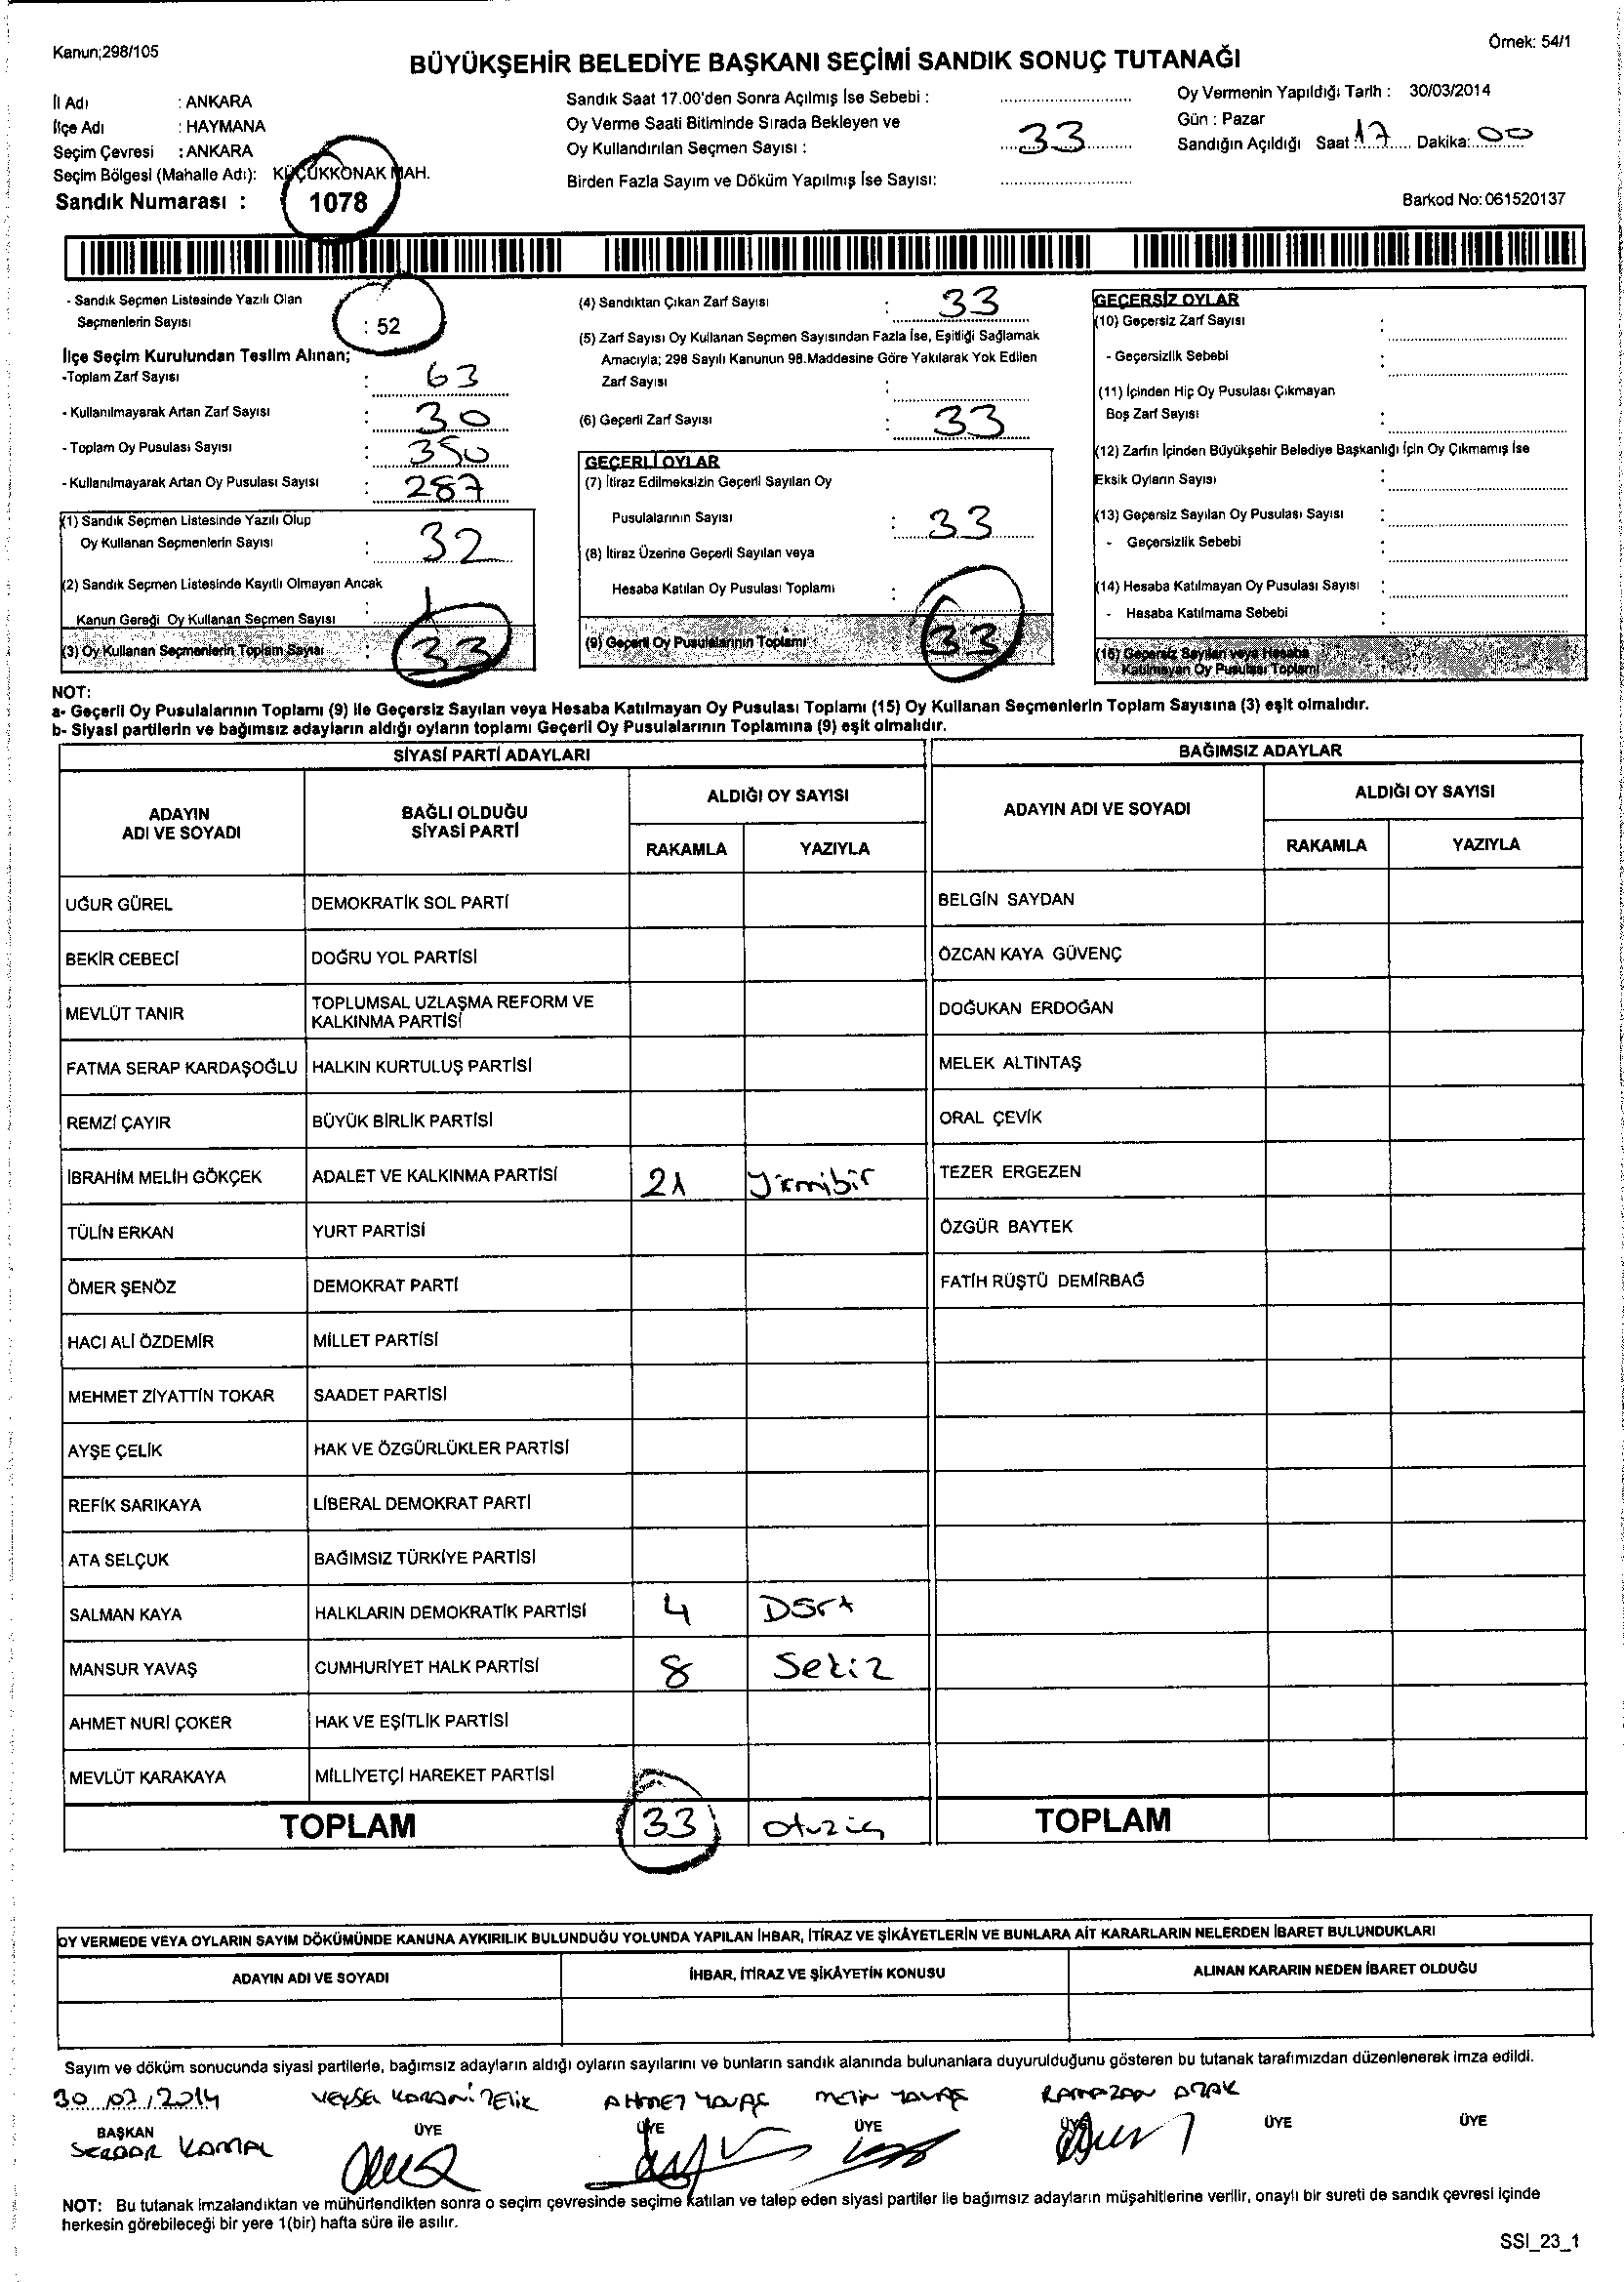 Kanun;298/105
Örnek: 54/1
BÜYÜKŞEHİR BELEDİYE BAŞKANI SEÇİMİ SANDIK SONUÇ TUTANAĞI
İl Adı : ANKARA
İlçe Adı : HAYMANA
Seçim Çevresi : ANKARA
Seçim Bölgesi (Mahalle Adı): KÜÇÜKKONAK MAH.
Sandık Numarası : 1078
Sandık Saat 17.00'den Sonra Açılmış İse Sebebi :
Oy Verme Saati Bitiminde Sırada Bekleyen ve
Oy Kullandırılan Seçmen Sayısı : 33
Birden Fazla Sayım ve Döküm Yapılmış İse Sayısı:
Oy Vermenin Yapıldığı Tarih : 30/03/2014
Gün : Pazar
Sandığın Açıldığı Saat 17 Dakika: 00
Barkod No: 061520137
- Sandık Seçmen Listesinde Yazılı Olan
Seçmenlerin Sayısı : 52
İlçe Seçim Kurulundan Teslim Alınan;
-Toplam Zarf Sayısı : 63
- Kullanılmayarak Artan Zarf Sayısı : 30
- Toplam Oy Pusulası Sayısı : 350
- Kullanılmayarak Artan Oy Pusulası Sayısı : 287
(1) Sandık Seçmen Listesinde Yazılı Olup
Oy Kullanan Seçmenlerin Sayısı : 32
(2) Sandık Seçmen Listesinde Kayıtlı Olmayan Ancak
Kanun Gereği Oy Kullanan Seçmen Sayısı : 1
(3) Oy Kullanan Seçmenlerin Toplam Sayısı : 33
(4) Sandıktan Çıkan Zarf Sayısı : 33
(5) Zarf Sayısı Oy Kullanan Seçmen Sayısından Fazla İse, Eşitliği Sağlamak
Amacıyla; 298 Sayılı Kanunun 98.Maddesine Göre Yakılarak Yok Edilen
Zarf Sayısı :
(6) Geçerli Zarf Sayısı : 33
GEÇERLİ OYLAR
(7) İtiraz Edilmeksizin Geçerli Sayılan Oy
Pusulalarının Sayısı : 33
(8) İtiraz Üzerine Geçerli Sayılan veya
Hesaba Katılan Oy Pusulası Toplamı :
(9) Geçerli Oy Pusulalarının Toplamı : 33
GEÇERSİZ OYLAR
(10) Geçersiz Zarf Sayısı :
- Geçersizlik Sebebi :
(11) İçinden Hiç Oy Pusulası Çıkmayan
Boş Zarf Sayısı :
(12) Zarfın İçinden Büyükşehir Belediye Başkanlığı İçin Oy Çıkmamış İse
Eksik Oyların Sayısı :
(13) Geçersiz Sayılan Oy Pusulası Sayısı :
- Geçersizlik Sebebi :
(14) Hesaba Katılmayan Oy Pusulası Sayısı :
- Hesaba Katılmama Sebebi :
(15) Geçersiz Sayılan veya Hesaba
Katılmayan Oy Pusulası Toplamı
NOT:
a- Geçerli Oy Pusulalarının Toplamı (9) ile Geçersiz Sayılan veya Hesaba Katılmayan Oy Pusulası Toplamı (15) Oy Kullanan Seçmenlerin Toplam Sayısına (3) eşit olmalıdır.
b- Siyasi partilerin ve bağımsız adayların aldığı oyların toplamı Geçerli Oy Pusulalarının Toplamına (9) eşit olmalıdır.
SİYASİ PARTİ ADAYLARI BAĞIMSIZ ADAYLAR
ADAYIN ADI VE SOYADI BAĞLI OLDUĞU SİYASİ PARTİ ALDIĞI OY SAYISI ADAYIN ADI VE SOYADI ALDIĞI OY SAYISI
RAKAMLA YAZIYLA RAKAMLA YAZIYLA
UĞUR GÜREL DEMOKRATİK SOL PARTİ BELGİN SAYDAN
BEKİR CEBECİ DOĞRU YOL PARTİSİ ÖZCAN KAYA GÜVENÇ
MEVLÜT TANIR TOPLUMSAL UZLAŞMA REFORM VE KALKINMA PARTİSİ DOĞUKAN ERDOĞAN
FATMA SERAP KARDAŞOĞLU HALKIN KURTULUŞ PARTİSİ MELEK ALTINTAŞ
REMZİ ÇAYIR BÜYÜK BİRLİK PARTİSİ ORAL ÇEVİK
İBRAHİM MELİH GÖKÇEK ADALET VE KALKINMA PARTİSİ 21 Yirmibir TEZER ERGEZEN
TÜLİN ERKAN YURT PARTİSİ ÖZGÜR BAYTEK
ÖMER ŞENÖZ DEMOKRAT PARTİ FATİH RÜŞTÜ DEMİRBAĞ
HACI ALİ ÖZDEMİR MİLLET PARTİSİ
MEHMET ZİYATTİN TOKAR SAADET PARTİSİ
AYŞE ÇELİK HAK VE ÖZGÜRLÜKLER PARTİSİ
REFİK SARIKAYA LİBERAL DEMOKRAT PARTİ
ATA SELÇUK BAĞIMSIZ TÜRKİYE PARTİSİ
SALMAN KAYA HALKLARIN DEMOKRATİK PARTİSİ 4 Dört
MANSUR YAVAŞ CUMHURİYET HALK PARTİSİ 8 Sekiz
AHMET NURİ ÇOKER HAK VE EŞİTLİK PARTİSİ
MEVLÜT KARAKAYA MİLLİYETÇİ HAREKET PARTİSİ
TOPLAM 33 otuzüç TOPLAM
OY VERMEDE VEYA OYLARIN SAYIM DÖKÜMÜNDE KANUNA AYKIRILIK BULUNDUĞU YOLUNDA YAPILAN İHBAR, İTİRAZ VE ŞİKÂYETLERİN VE BUNLARA AİT KARARLARIN NELERDEN İBARET BULUNDUKLARI
ADAYIN ADI VE SOYADI İHBAR, İTİRAZ VE ŞİKÂYETİN KONUSU ALINAN KARARIN NEDEN İBARET OLDUĞU
Sayım ve döküm sonucunda siyasi partilerle, bağımsız adayların aldığı oyların sayılarını ve bunların sandık alanında bulunanlara duyurulduğunu gösteren bu tutanak tarafımızdan düzenlenerek imza edildi.
30 03/2014 VEYSEL KARANİ AHMET YAVAŞ METİN YAVAŞ RAMAZAN
BAŞKAN ÜYE ÜYE ÜYE ÜYE ÜYE ÜYE
SERDAR
NOT: Bu tutanak imzalandıktan ve mühürlendikten sonra o seçim çevresinde seçime katılan ve talep eden siyasi partiler ile bağımsız adayların müşahitlerine verilir, onaylı bir sureti de sandık çevresi içinde
herkesin görebileceği bir yere 1(bir) hafta süre ile asılır.
SSI_23_1